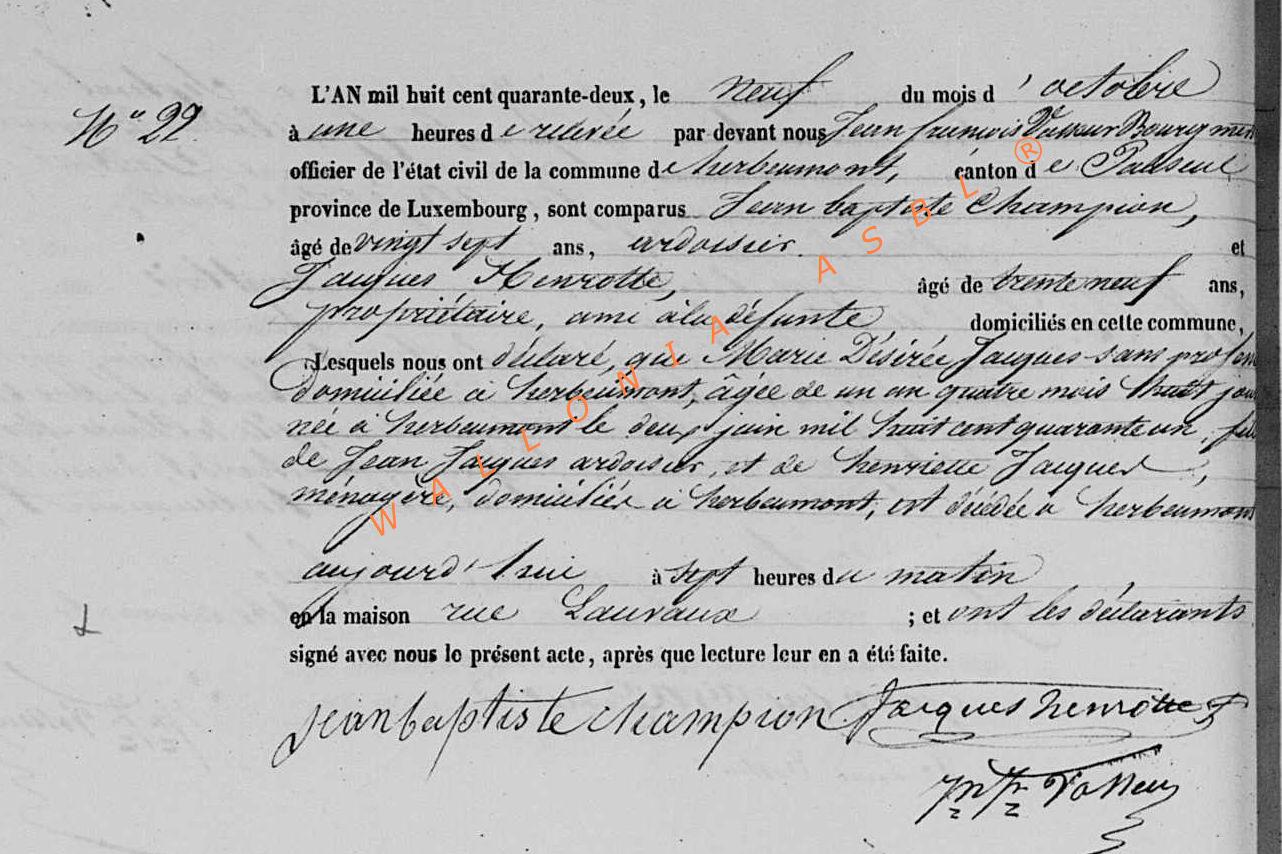 N° 22.
L'AN mil huit cent quarante-deux, le neuf du mois d'octobre
à une heures de relevée par devant nous Jean françois Vasseur Bourgmes
officier de l'état civil de la commune de herbeumont, canton de Paliseul
province de Luxembourg, sont comparus Jean baptiste Champion,
âgé de vingt sept ans, ardoisier. et
Jacques Henrotte, âgé de trente neuf ans,
propriétaire, ami à la défunte domiciliés en cette commune,
Lesquels nous ont déclaré, que Marie Désirée Jacques sans profes
domiciliée à herbeumont, âgée de un an quatre mois huit jou
née à herbeumont le deux juin mil huit cent quarante un, fille
de Jean Jacques ardoisier, et de henriette Jacques,
ménagère, domiciliés à herbeumont, est décédée à herbeumont
aujourd'hui à sept heures du matin
en la maison rue Lauvaux ; et ont les déclarants
signé avec nous le présent acte, après que lecture leur en a été faite.
jean baptiste champion Jacques henrotte
Jn Fr Vasseur
WALLONIA ASBL ®